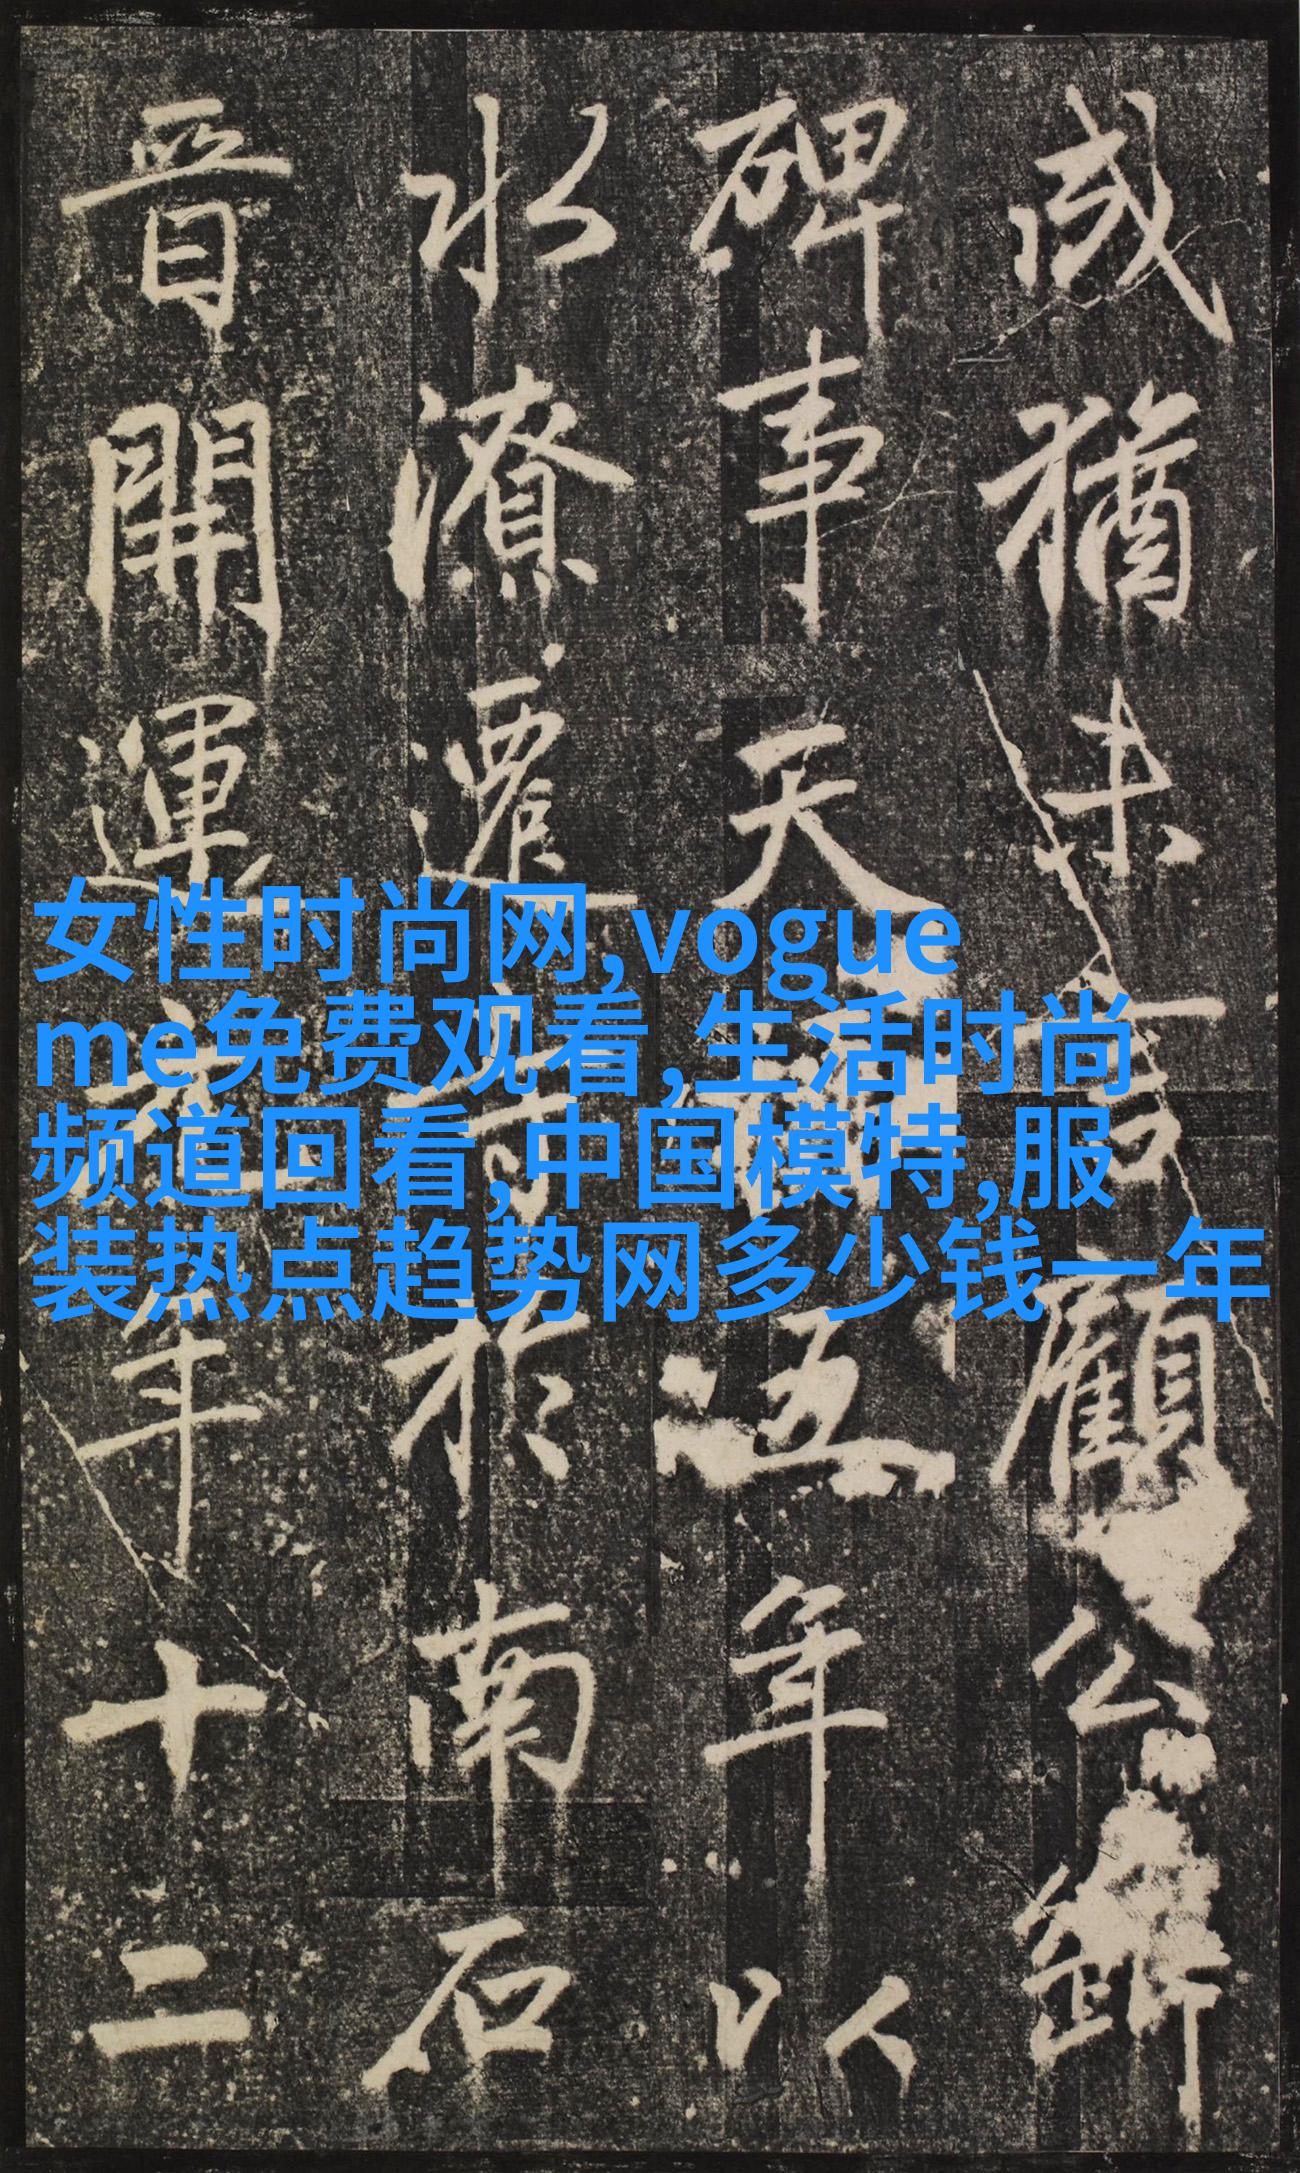 咸猶未言顧公辭
碑事天五年以
水潦遷於南石
晋開運年十二
女性时尚网,vogue
me免费观看,生活时尚
频道回看,中国模特,服
装热点趋势网多少钱一年